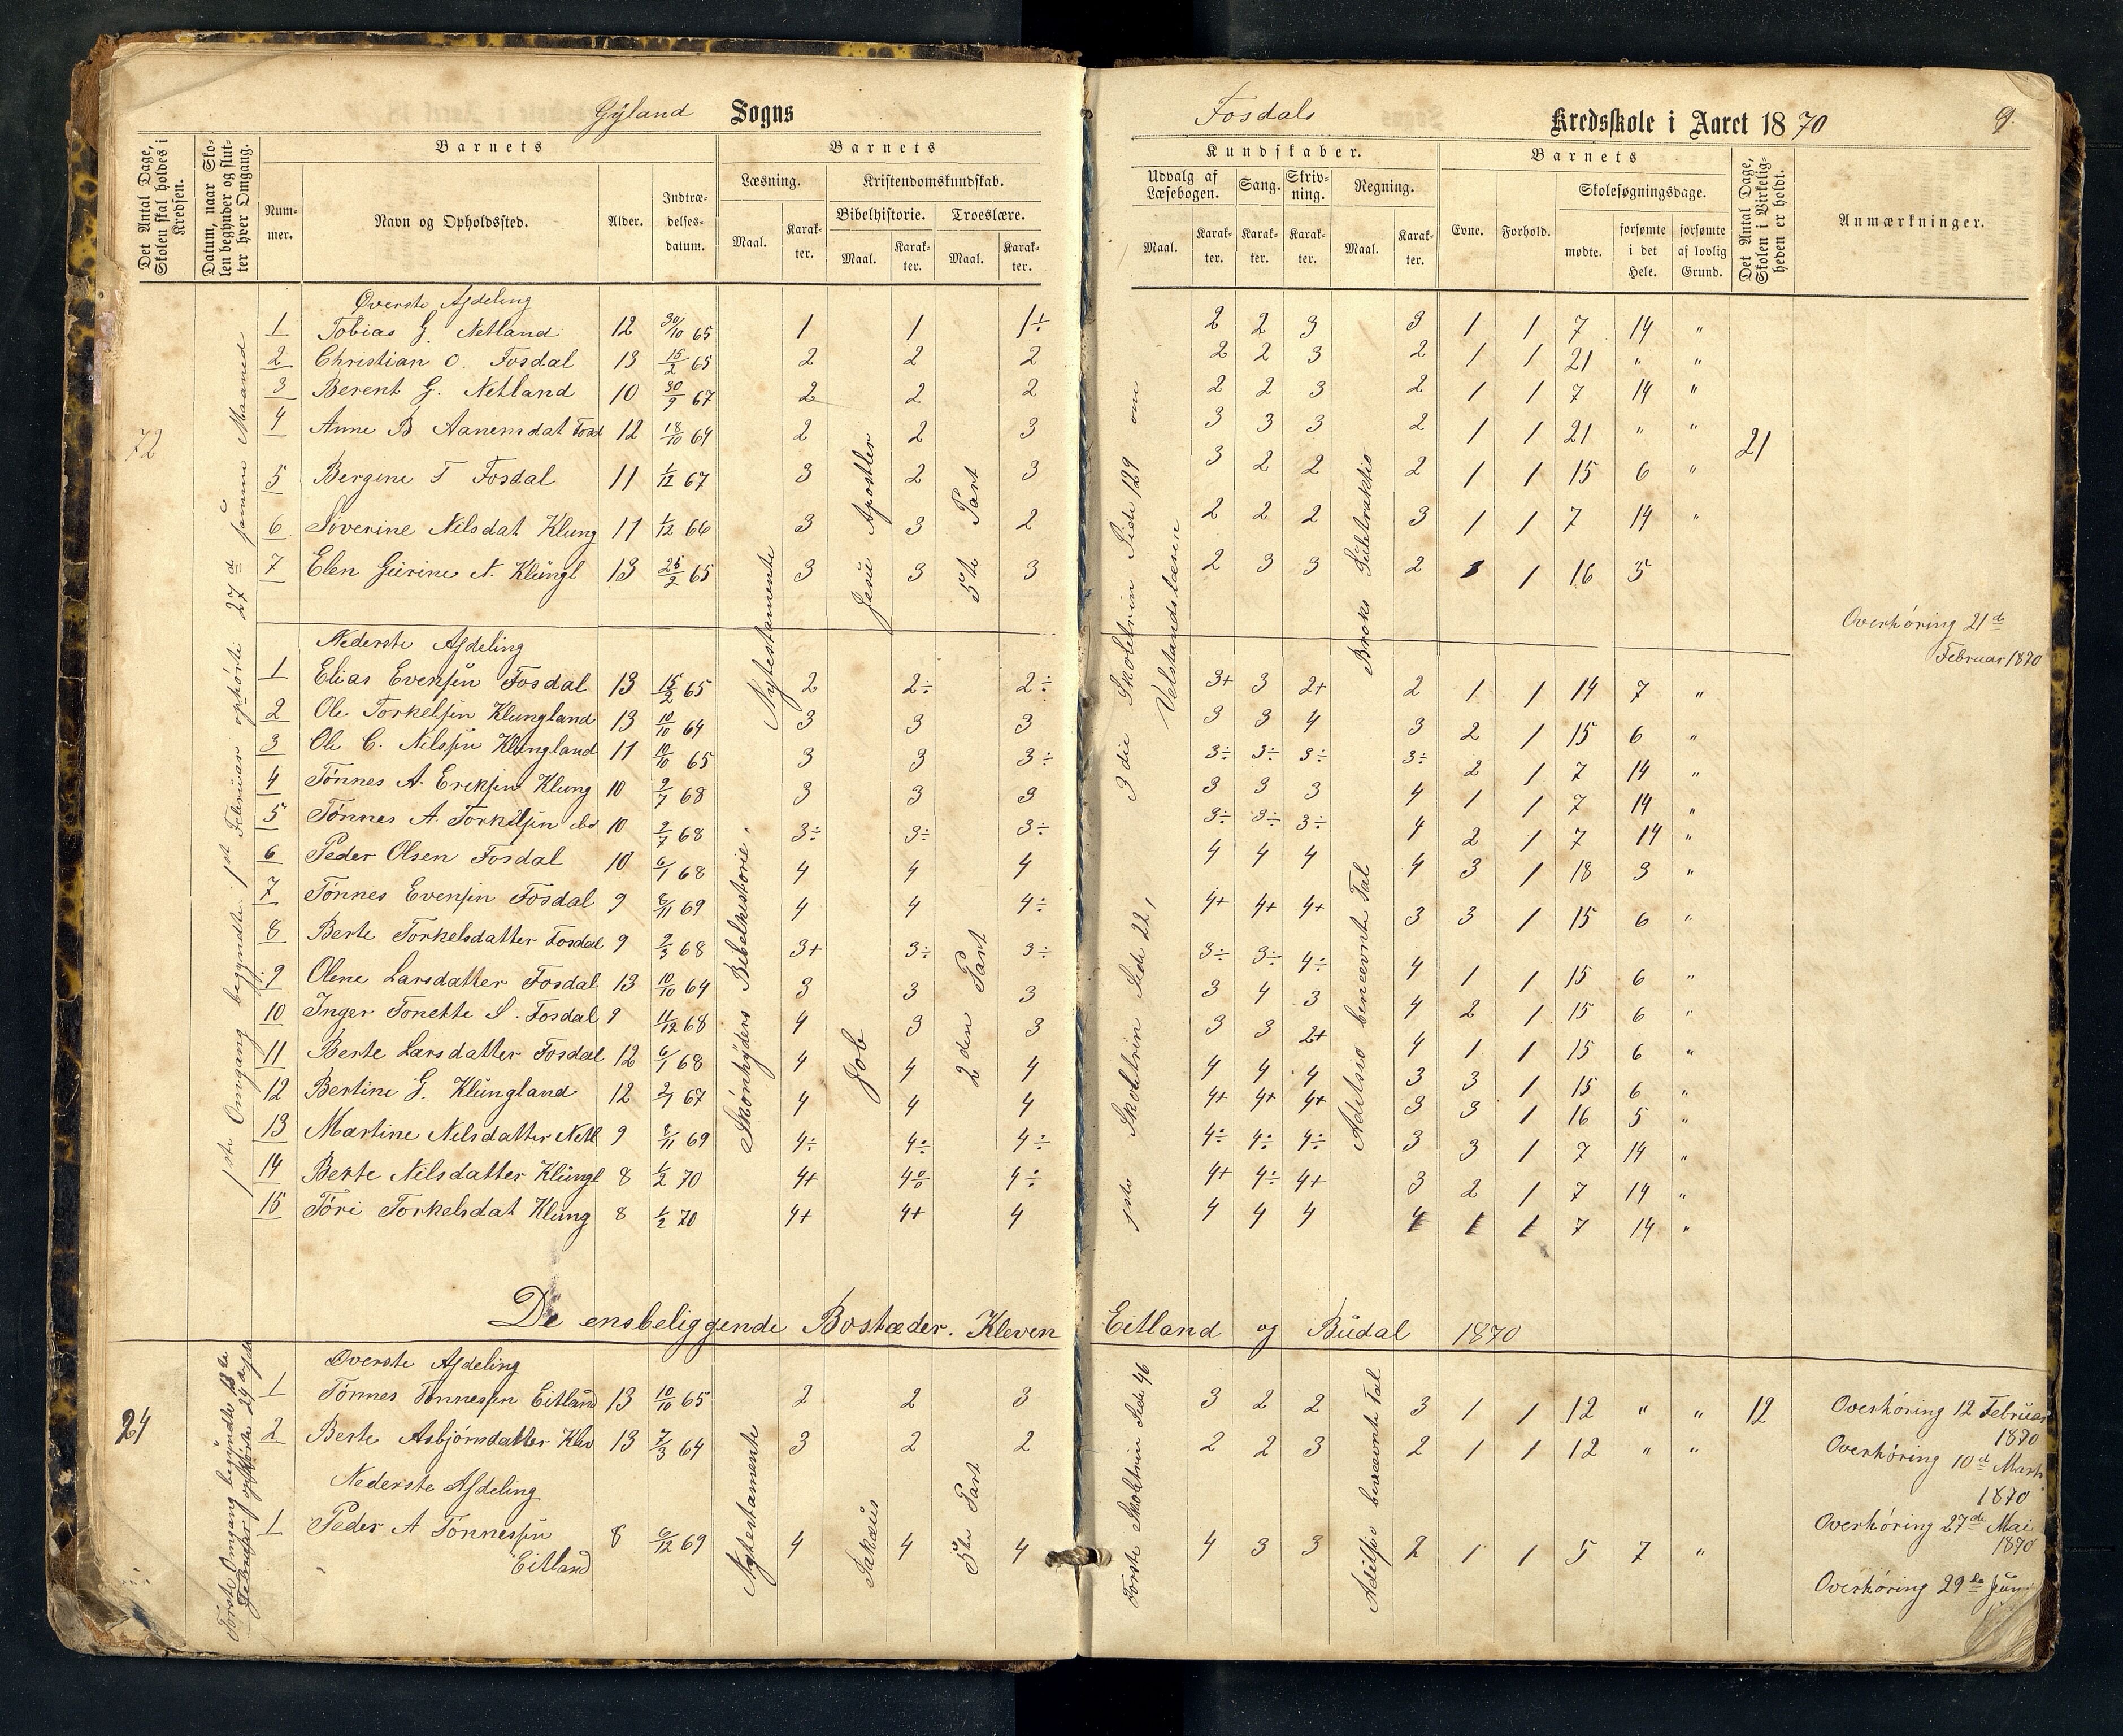 Gyland Sogns
Fosdals Kredsskole i Aaret 1870 9.
Det Antal Dage, Skolen skal holdes i Kredsen.
Datum, naar Skolen begynder og slutter hver Omgang.
Barnets
Nummer.
Navn og Opholdssted.
Alder.
Indtrædelsesdatum.
Barnets
Læsning.
Maal.
Karakter.
Kristendomskundskab.
Bibelhistorie.
Maal.
Karakter.
Troeslære.
Maal.
Karakter.
Kundskaber.
Udvalg af Læsebogen.
Maal.
Karakter.
Sang.
Karakter.
Skrivning.
Karakter.
Regning.
Maal.
Karakter.
Barnets
Evne.
Forhold.
Skolesøgningsdage.
mødte.
forsømte i det Hele.
forsømte af lovlig Grund.
Det Antal Dage, Skolen i Virkeligheden er holdt.
Anmærkninger.
72
1ste Omgang begyndte 1st Februar ophørte 27d samme Maaned
Øverste Afdeling
1 Tobias G. Netland 12 30/10 65 1 1 1÷ 2 2 3 3 1 1 7 14 "
2 Christian O. Fosdal 13 15/2 65 2 2 2 2 2 3 2 1 1 21 " "
3 Berent G. Netland 10 30/9 67 2 2 2 2 2 3 2 1 1 7 14 "
4 Anne B Aanensdat Fosd 12 18/10 64 2 2 3 3 3 3 2 1 1 21 " " 21
5 Bergine T Fosdal 11 1/12 67 3 2 3 3 2 2 2 1 1 15 6 "
6 Severine Nilsdat Klung 11 1/12 66 3 3 2 2 2 2 3 1 1 7 14 "
7 Elen Gurine N. Klungl 13 25/2 65 3 3 3 2 3 3 2 1 16 5
Nytestamente
Jesu Apostler
5te Part
3die Skoletrin Side 129 om
Velstandslæren
Broks Subtraktio
Overhøring 21de
Februar 1870
Nederste Afdeling
1 Elias Evensen Fosdal 13 15/2 65 2 2÷ 2÷ 3+ 3 2+ 2 1 1 14 7 "
2 Ole Torkelsen Klungland 13 10/10 64 3 3 3 3 3 4 3 2 1 15 6 "
3 Ole C. Nilsen Klungland 11 10/10 65 3 3 3÷ 3÷ 3÷ 3÷ 3÷ 2 1 7 14 "
4 Tønnes A. Eriksen Klung 10 9/7 68 3 3 3 3 3 3 4 1 1 7 14 "
5 Tønnes A. Torkelsen do 10 9/7 68 3÷ 3÷ 3÷ 3÷ 3÷ 3÷ 4 2 1 7 14 "
6 Peder Olsen Fosdal 10 6/1 68 4 4 4 4 4 4 4 3 1 18 3 "
7 Tønnes Evensen Fosdal 9 8/11 69 4 4 4÷ 4+ 4+ 4+ 3 3 1 15 6 "
8 Berte Torkelsdatter Fosdal 9 9/3 68 3+ 3÷ 3÷ 3÷ 3÷ 4÷ 4 1 1 15 6 "
9 Olene Larsdatter Fosdal 13 10/10 64 3 3 3 3 4 3 4 2 1 15 6 "
10 Inger Tonette S. Fosdal 9 11/12 68 4 3 3 3 3 2+ 4 1 1 15 6 "
11 Berte Larsdatter Fosdal 12 6/1 68 4 4 4 4 4 4 3 3 1 15 6 "
12 Bertine G. Klungland 12 2/1 67 4 4 4 4+ 4+ 4+ 3 3 1 16 5 "
13 Martine Nilsdatter Netl 9 8/11 69 4÷ 4÷ 4÷ 4÷ 4÷ 4÷ 3 3 1 7 14 "
14 Berte Nilsdatter Klungl 8 1/2 70 4+ 4÷ 4÷ 4+ 4÷ 4+ 3 2 1 7 14 "
15 Tori Torkelsdat Klung 8 1/2 70 4+ 4+ 4 4 4 4 4 1 1 7 14 "
Skønhyders Bibelhistorie.
Job
2den Part
1ste Skoletrin Side 22,
Aditsio benevnte Tal
De ensbeliggende Bostæder. Kleven Eitland og Budal 1870
24
Første Omgang begyndte
Februar ophørte
Øverste Afdeling
1 Tønnes Tønnessen Eitland 13 10/10 65 2 2 3 3 2 2 3 1 1 12 " " 12
2 Berte Asbjørnsdatter Klev 13 7/3 64 3 2 2 2 2 3 2 1 1 12 " "
Nederste Afdeling
1 Peder A Tønnessen
Eitland 8 6/12 69 4 4 4 4 3 3 2 1 1 5 7 "
Nytestamente
Sakæus
5te Part
Første Skoletrin Side 46
Aditsio benævnte Tal
Overhøring 12 Februar
1870
Overhøring 10d Marts
1870
Overhøring 27de Mai
1870
Overhøring 29de Juni